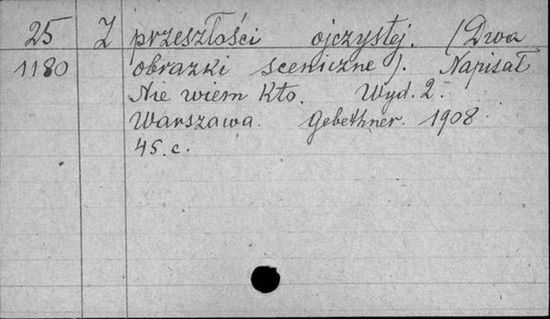 25 Z przeszłości ojczystej. (Dwa
1180 obrazki sceniczne). Napisał
Nie wiem Kto. Wyd. 2.
Warszawa. Gebethner. 1908
45. c.